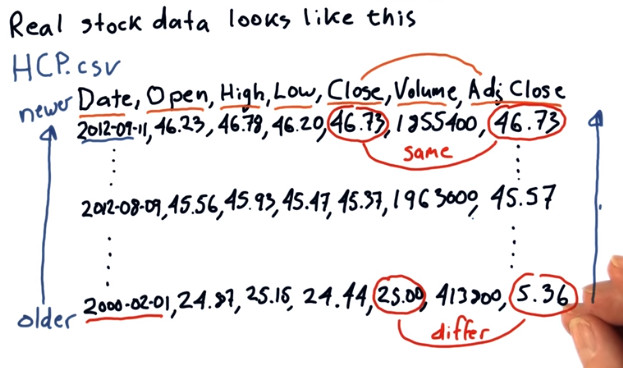 Real stock data looks like this
HCP.csv
newer Date, Open, High, Low, Close, Volume, Adj Close
2012-09-11, 46.23, 46.78, 46.20, 46.73, 1855400, 46.73
same
2012-08-09, 45.56, 45.93, 45.47, 45.37, 1963600, 45.57
2000-02-01, 24.87, 25.18, 24.44, 25.00, 413800, 5.36
older
differ